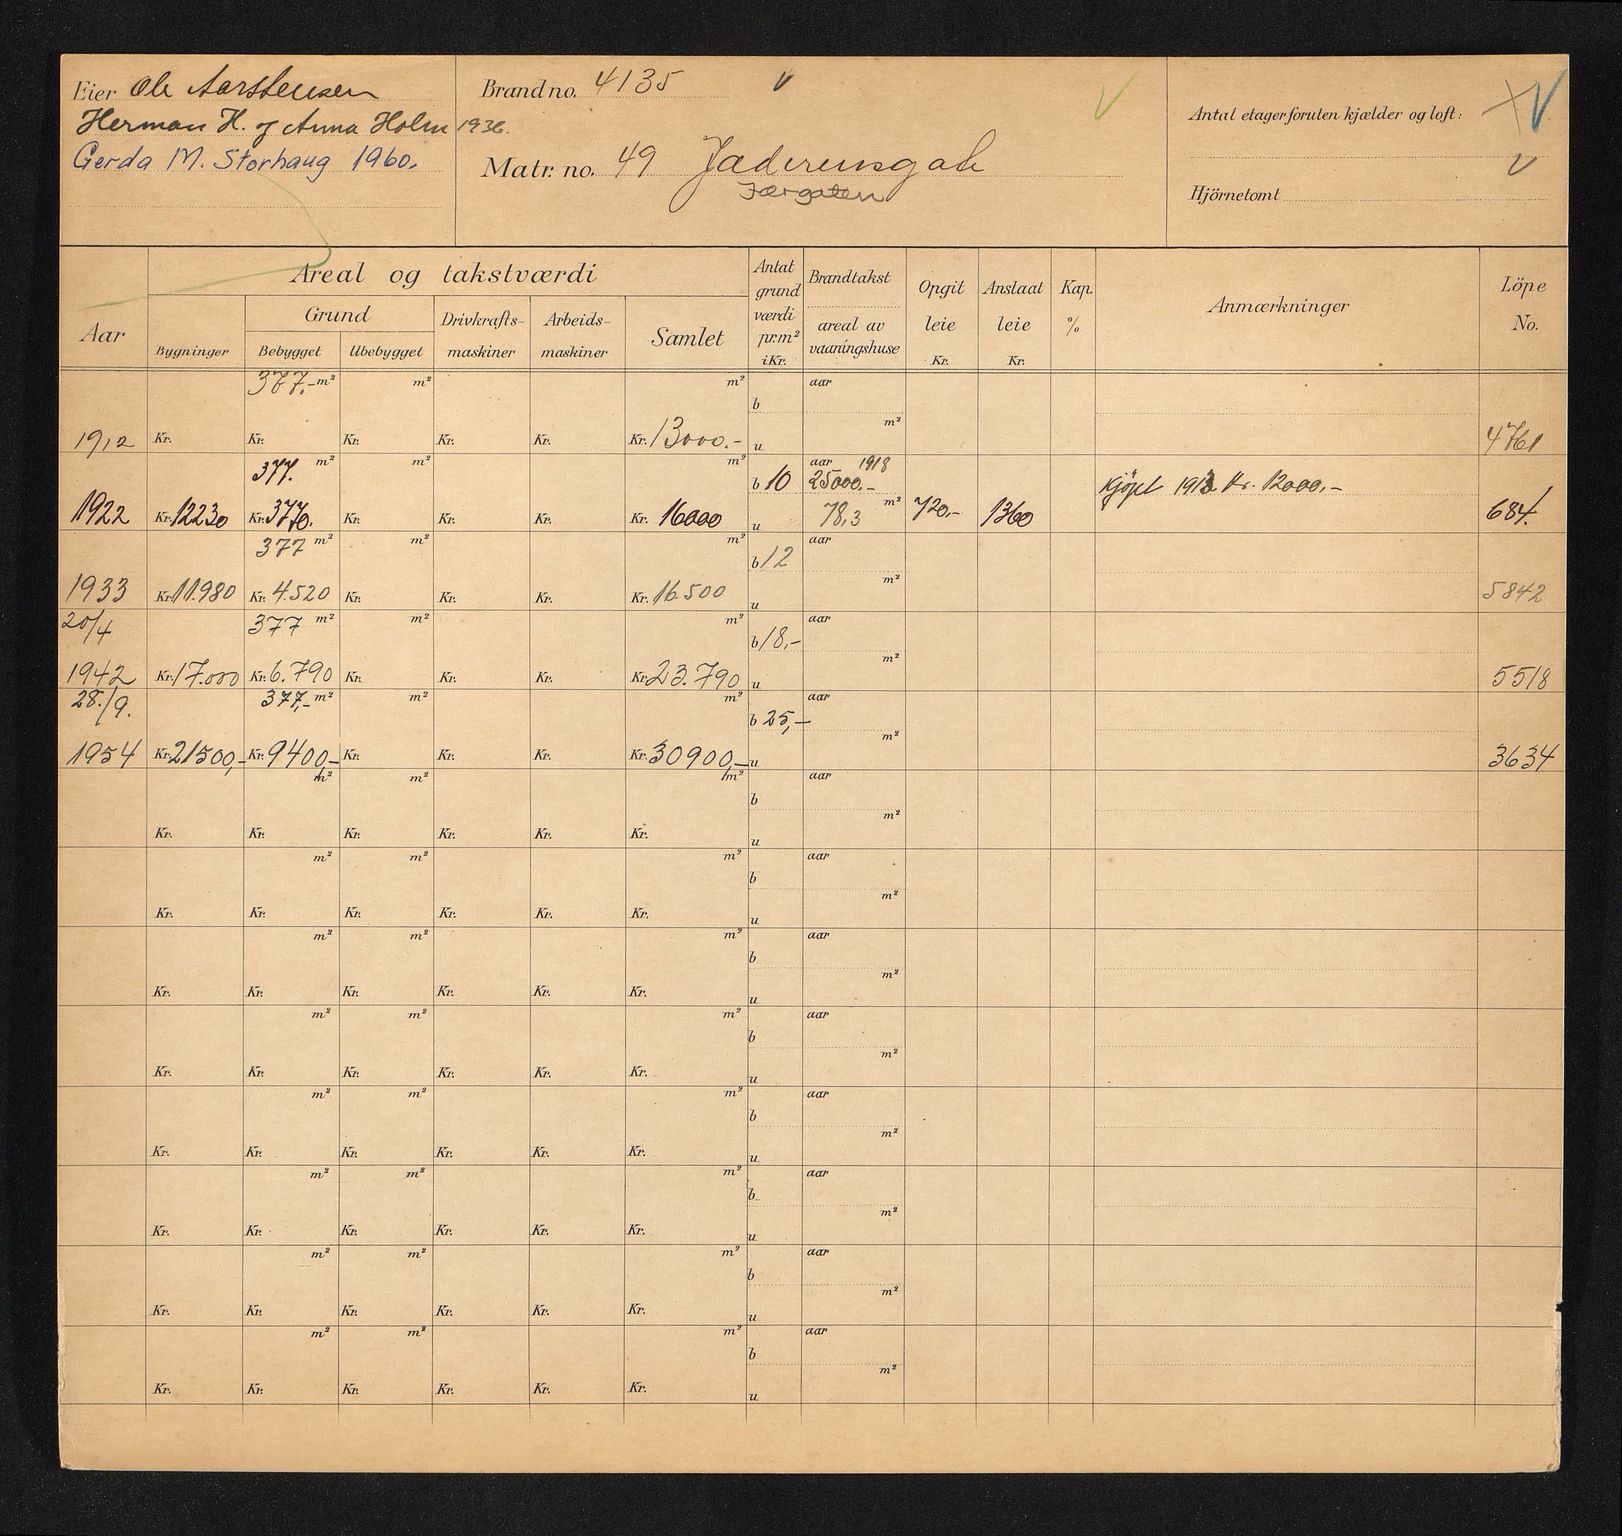 Eier Ole Aarstensen
Herman H. og Anna Holm 1936.
Gerda M. Storhaug 1960.
Brand no. 4135
Matr. no. 49 Jæderensgate
Jærgaten
Antal etager foruten kjælder og loft:
Hjörnetomt
Aar
Areal og takstværdi
Bygninger
Grund
Bebygget
Ubebygget
Drivkrafts-
maskiner
Arbeids-
maskiner
Samlet
Antat
grund
værdi
pr.m²
i Kr.
Brandtakst
areal av
vaaningshuse
Opgit
leie
Kr.
Anslaat
leie
Kr.
Kap.
%
Anmærkninger
Löpe
No.
377.- m² m² m² b aar
1912 Kr. Kr. Kr. Kr. Kr. Kr. 13000.- u m² 4761
377. m² m² m² b 10 aar 1918
25000.-
Kjøpt 1913 Kr. 12000,-
1922 Kr. 12230 Kr. 3770. Kr. Kr. Kr. Kr. 16000 u 78,3 m² 720,- 1360 684
377 m² m² m² b 12 aar
1933 Kr. 11.980 Kr. 4.520 Kr. Kr. Kr. Kr. 16.500 u m² 5842
20/4 377 m² m² m² b 18,- aar
1942 Kr. 17.000 Kr. 6.790 Kr. Kr. Kr. Kr. 23.790 u m² 5518
28./9. 377,- m² m² m² b 25,- aar
1954 Kr. 21500,- Kr. 9400,- Kr. Kr. Kr. Kr. 30900,- u m² 3634
m² m² m² b aar
Kr. Kr. Kr. Kr. Kr. Kr. u m²
m² m² m² b aar
Kr. Kr. Kr. Kr. Kr. Kr. u m²
m² m² m² b aar
Kr. Kr. Kr. Kr. Kr. Kr. u m²
m² m² m² b aar
Kr. Kr. Kr. Kr. Kr. Kr. u m²
m² m² m² b aar
Kr. Kr. Kr. Kr. Kr. Kr. u m²
m² m² m² b aar
Kr. Kr. Kr. Kr. Kr. Kr. u m²
m² m² m² b aar
Kr. Kr. Kr. Kr. Kr. Kr. u m²
m² m² m² b aar
Kr. Kr. Kr. Kr. Kr. Kr. u m²